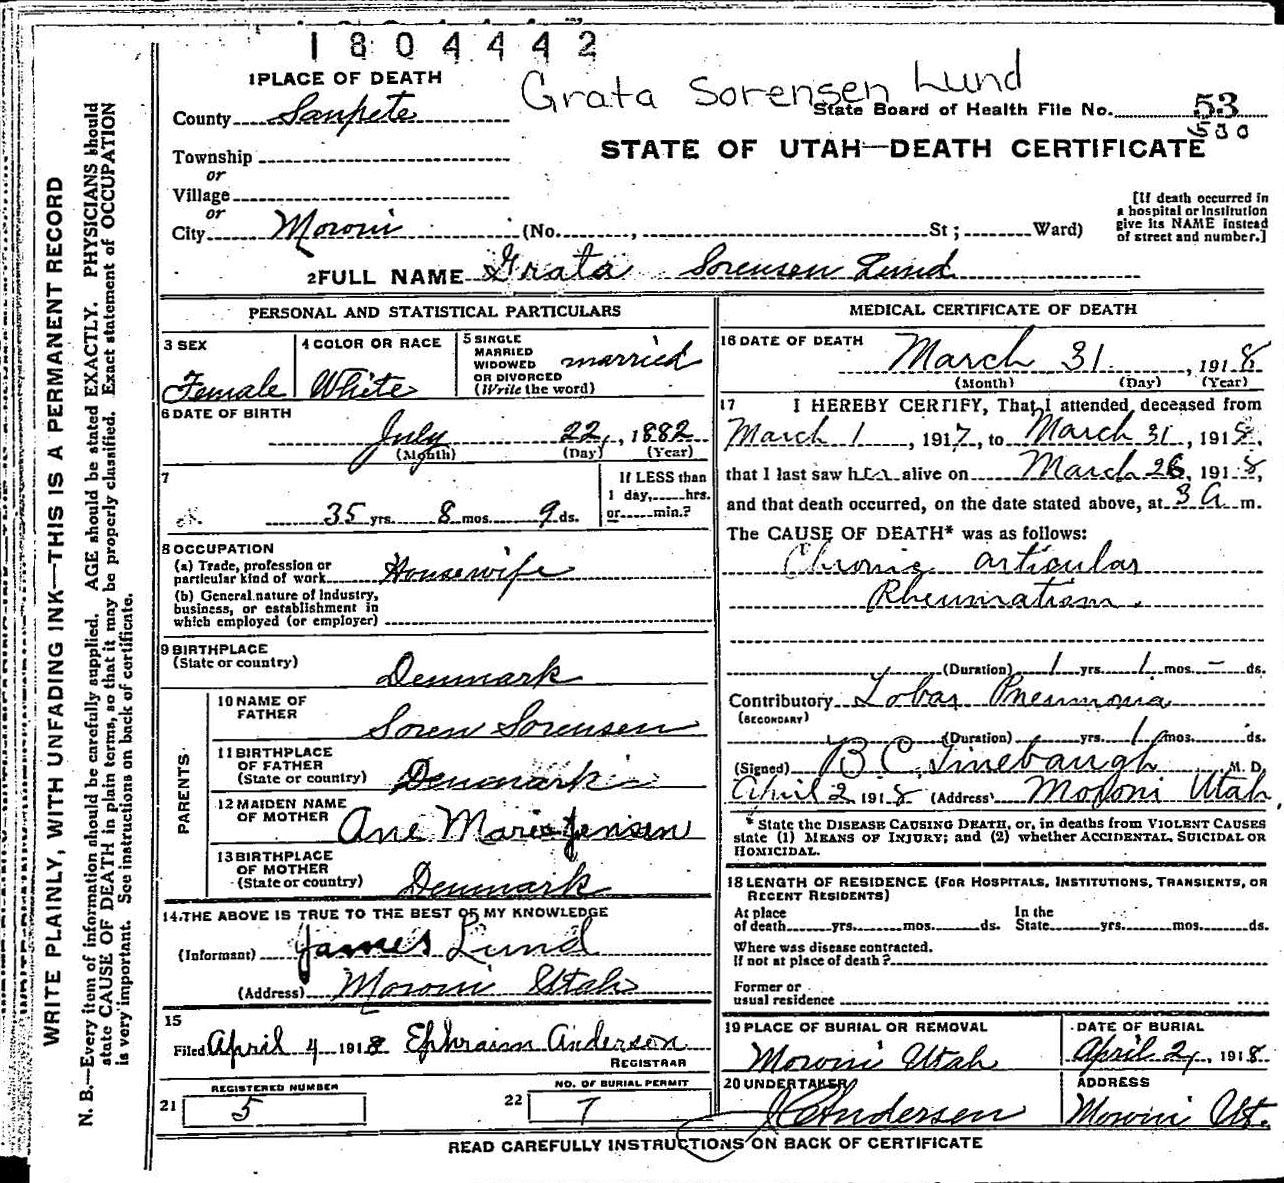 1804442
Grata Sorensen Lund
1 PLACE OF DEATH
County Sanpete
State Board of Health File No. 53
500
Township
STATE OF UTAH—DEATH CERTIFICATE
or
Village
or
City Moroni (No. , St; Ward)
[If death occurred in
a hospital or institution
give its NAME instead
of street and number.]
2 FULL NAME Grata Sorensen Lund
PERSONAL AND STATISTICAL PARTICULARS
3 SEX
Female
4 COLOR OR RACE
White
5 SINGLE
MARRIED
WIDOWED
OR DIVORCED
(Write the word)
married
6 DATE OF BIRTH
July 22, 1882
(Month) (Day) (Year)
7
35 yrs. 8 mos. 9 ds.
If LESS than
1 day, hrs.
or min.?
8 OCCUPATION
(a) Trade, profession or
particular kind of work Housewife
(b) General nature of Industry,
business, or establishment in
which employed (or employer)
9 BIRTHPLACE
(State or country)
Denmark
PARENTS
10 NAME OF
FATHER
Soren Sorensen
11 BIRTHPLACE
OF FATHER
(State or country) Denmark
12 MAIDEN NAME
OF MOTHER
Ane Marie Jensen
13 BIRTHPLACE
OF MOTHER
(State or country) Denmark
14. THE ABOVE IS TRUE TO THE BEST OF MY KNOWLEDGE
(Informant) James Lund
(Address) Moroni Utah
15
Filed April 4 1918 Ephraim Anderson
REGISTRAR
REGISTERED NUMBER
21 5
NO. OF BURIAL PERMIT
22 7
MEDICAL CERTIFICATE OF DEATH
16 DATE OF DEATH
March 31, 1918
(Month) (Day) (Year)
17 I HEREBY CERTIFY, That I attended deceased from
March 1, 1917, to March 31, 1918,
that I last saw her alive on March 26, 1918,
and that death occurred, on the date stated above, at 3 a m.
The CAUSE OF DEATH* was as follows:
Chronic articular
Rheumatism.
(Duration) 1 yrs. 1 mos. - ds.
Contributory Lobar Pneumonia
(SECONDARY)
(Duration) yrs. 1 mos. ds.
(Signed) B C Linebaugh M. D.
April 2 1918 (Address) Moroni Utah,
* State the DISEASE CAUSING DEATH, or, in deaths from VIOLENT CAUSES
state (1) MEANS OF INJURY; and (2) whether ACCIDENTAL, SUICIDAL OR
HOMICIDAL.
18 LENGTH OF RESIDENCE (FOR HOSPITALS, INSTITUTIONS, TRANSIENTS, OR
RECENT RESIDENTS)
At place In the
of death yrs. mos. ds. State yrs. mos. ds.
Where was disease contracted.
If not at place of death?
Former or
usual residence
19 PLACE OF BURIAL OR REMOVAL
Moroni Utah
DATE OF BURIAL
April 2, 1918
20 UNDERTAKER
J C Andersen
ADDRESS
Moroni Ut.
READ CAREFULLY INSTRUCTIONS ON BACK OF CERTIFICATE
WRITE PLAINLY, WITH UNFADING INK—THIS IS A PERMANENT RECORD
N. B.—Every item of information should be carefully supplied. AGE should be stated EXACTLY. PHYSICIANS should
state CAUSE OF DEATH in plain terms, so that it may be properly classified. Exact statement of OCCUPATION
is very important. See instructions on back of certificate.